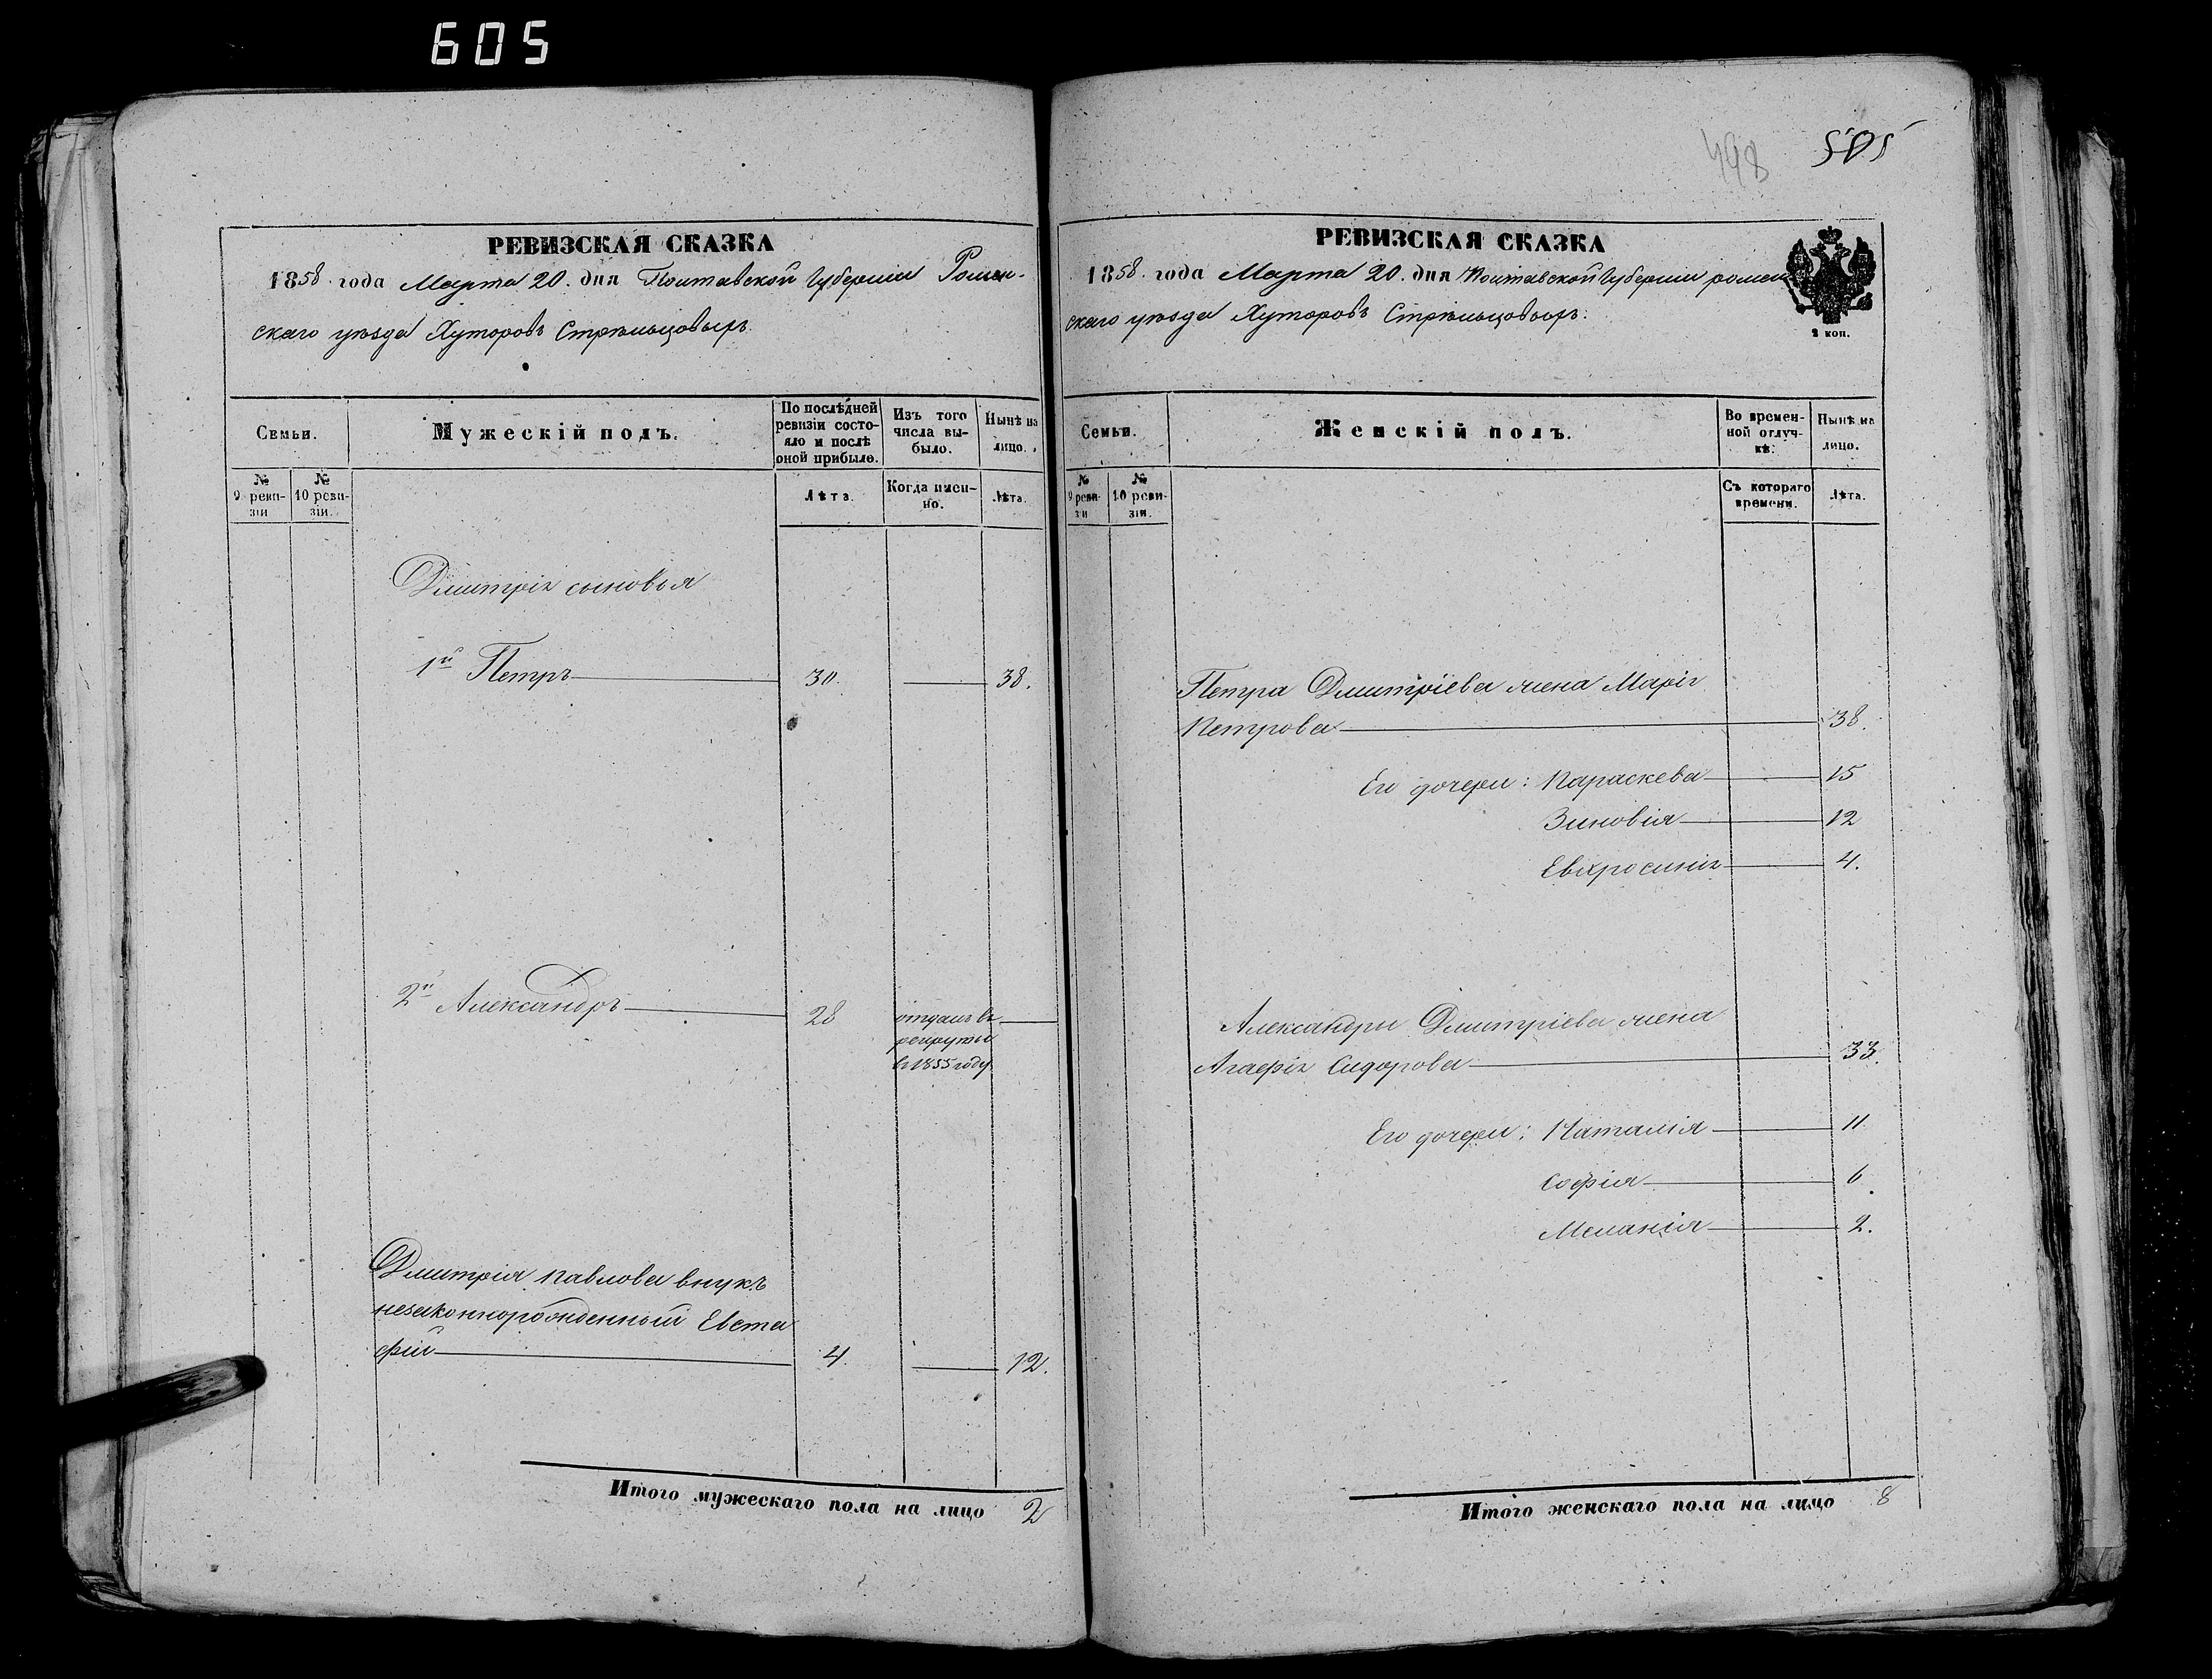 605
498
505
РЕВИЗСКАЯ СКАЗКА
1858 года Марта 20. дня Полтавской Губерніи Ромен-
скаго уѣзда Хуторовъ Стрѣльцовыхъ.
Семьи.
Мужескій полъ.
По послѣдней
ревизіи состо-
яло и послѣ
оной прибыло.
Изъ того
числа вы-
было.
Нынѣ на
лицо.
№
9 реви-
зіи
№
10 реви-
зіи.
Лѣта.
Когда имен-
но.
Лѣта.
Дмитрія сыновья
1й Петръ 30. 38.
2й Александръ 28 отданъ въ
рекруты
въ 1855 году
Дмитрія Павлова внукъ
незаконнорожденный Евста
фій 4. 12.
Итого мужескаго пола на лицо 2
РЕВИЗСКАЯ СКАЗКА
1858 года Марта 20. дня Полтавской Губерніи ромен
скаго уѣзда Хуторовъ Стрѣльцовыхъ:
2 коп.
Семьи.
Женскій полъ.
Во времен-
ной отлуч-
кѣ.
Нынѣ на
лицо.
№
9 реви-
зіи
№
10 реви-
зіи.
Съ котораго
времени.
Лѣта.
Петра Дмитріева жена Марія
Петрова 38.
Его дочери: Параскева 15
Зиновія 12
Евхросинія 4.
Александры Дмитріева жена
Агафія Сидорова 33.
Его дочери: Наталія 11.
Софія 6.
Меланія 2.
Итого женскаго пола на лицо 8